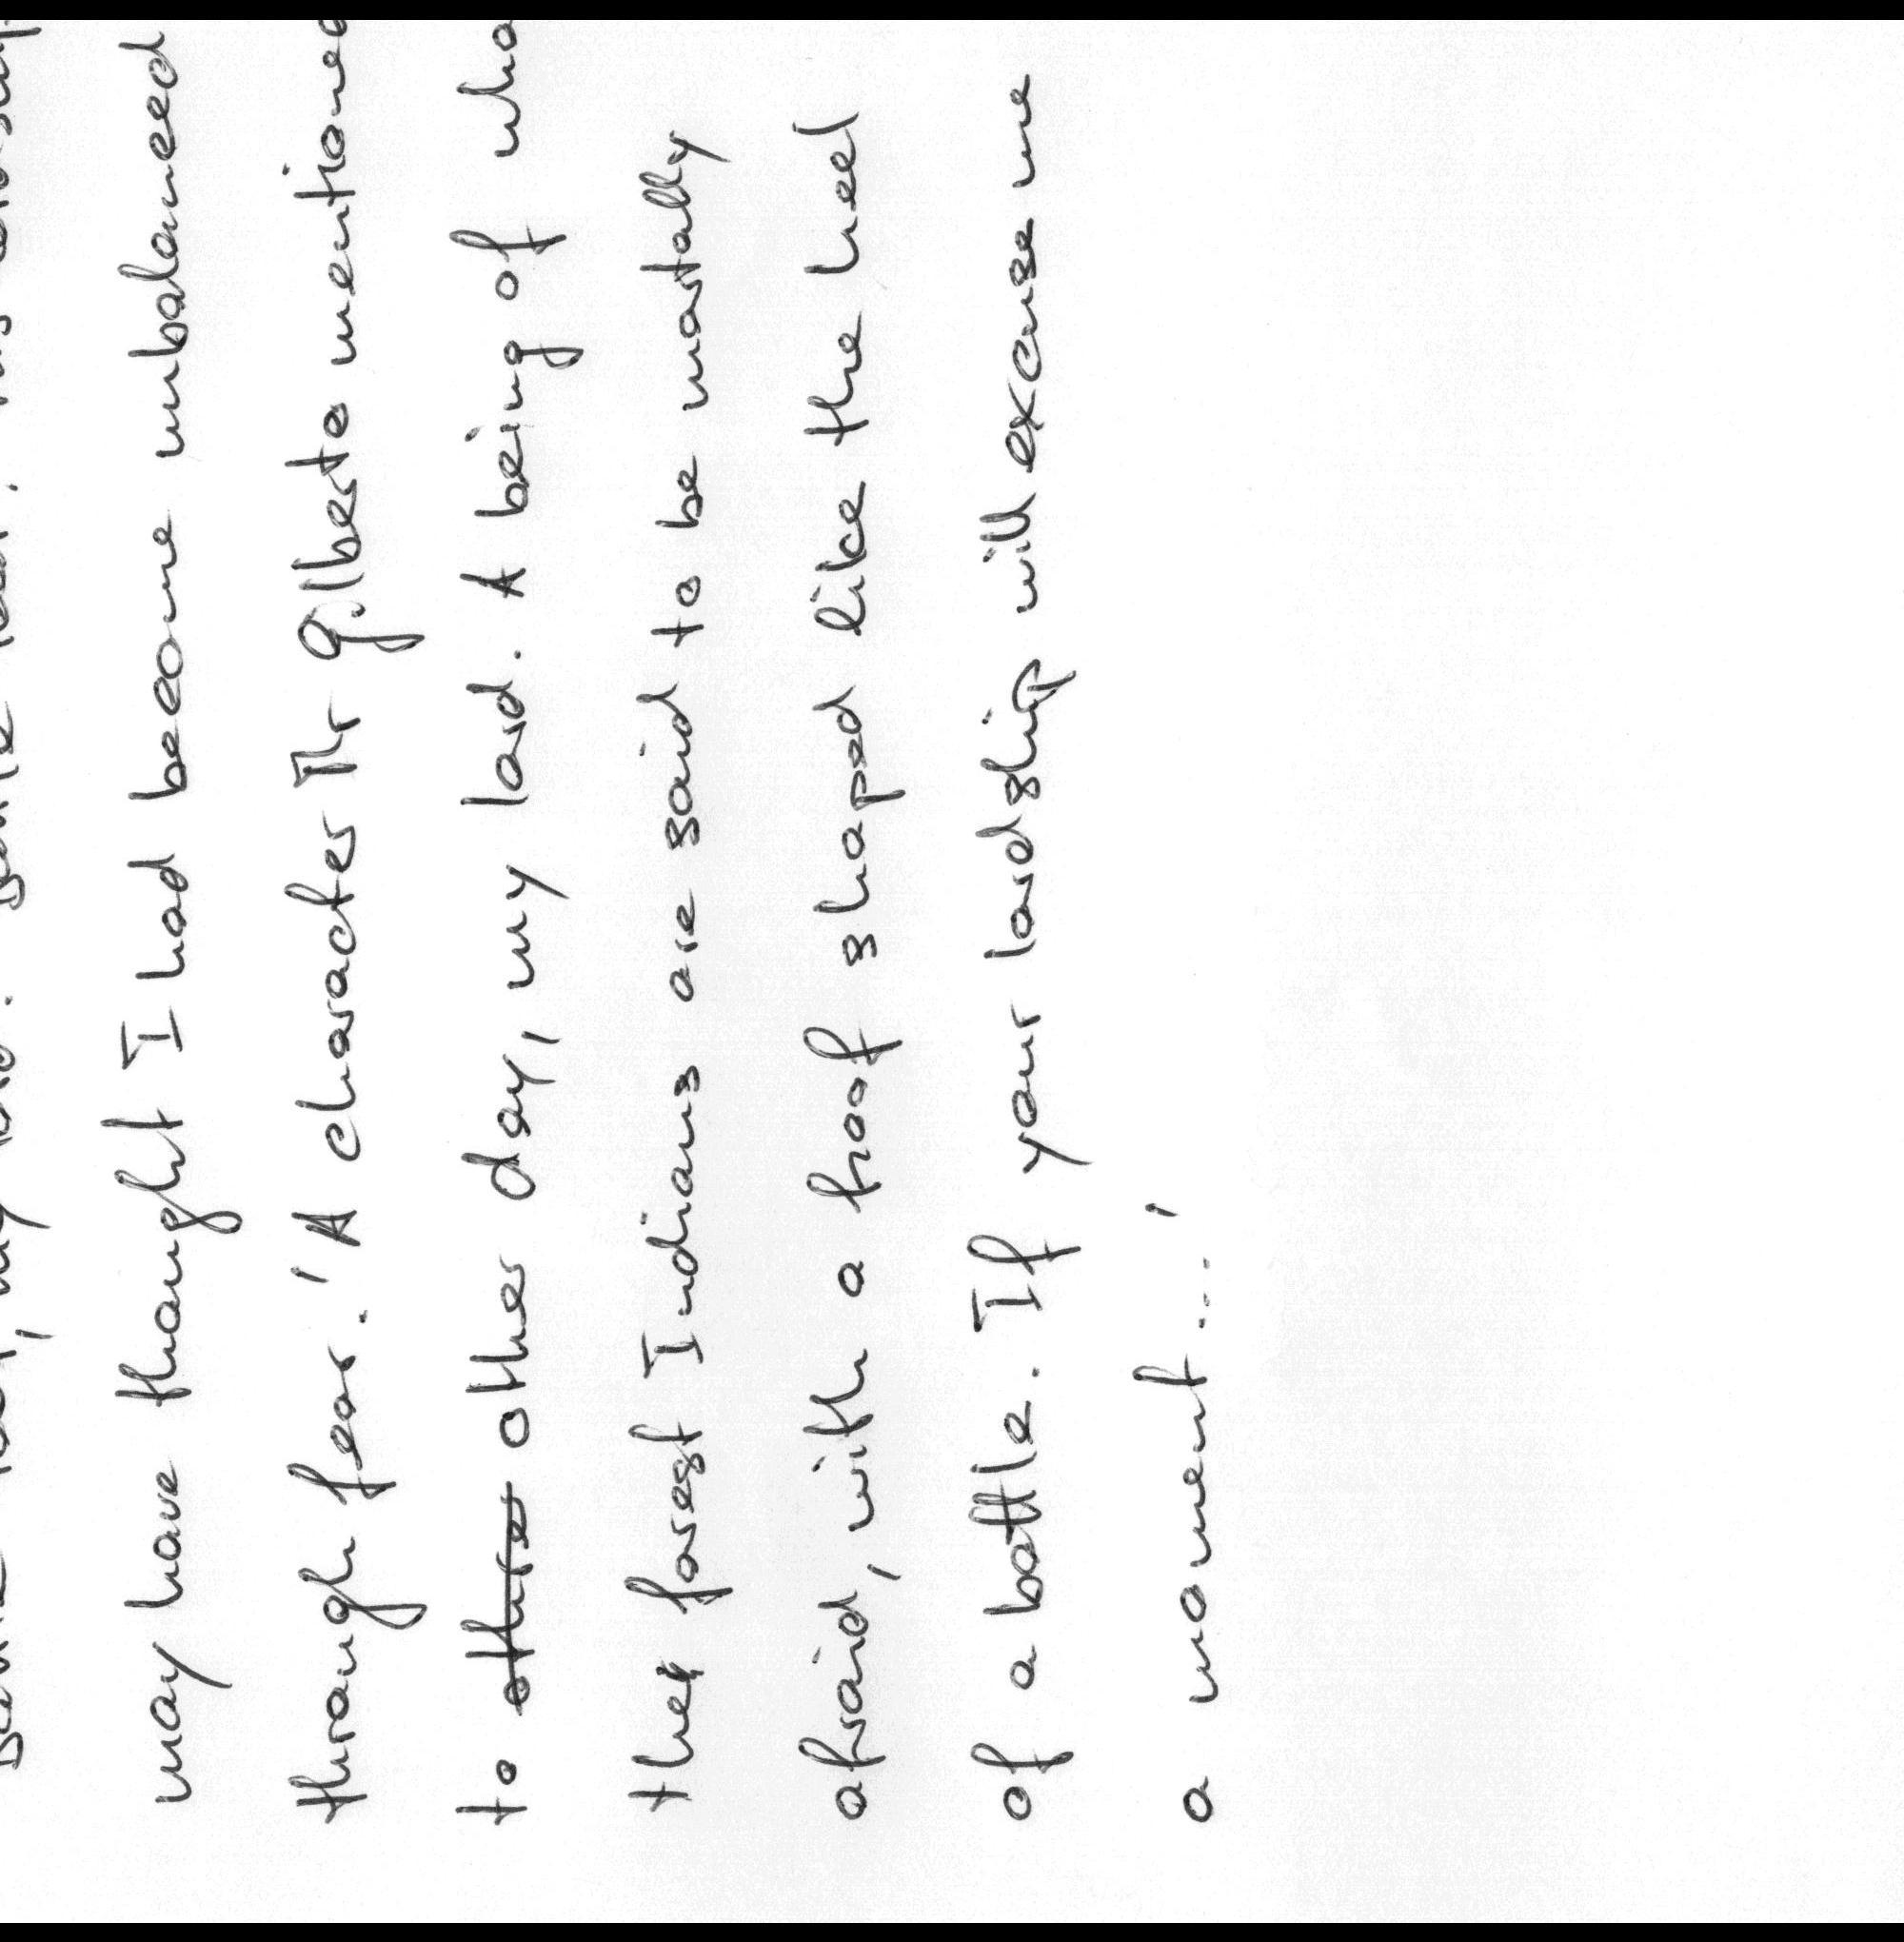 may have thought I had become unbalanced
through fear.' 'A character Mr Gilberto mentioned
to other day, my lord. A being of who
the forest Indians are said to be mortally
afraid, with a hoof shaped like the heel
of a bottle. If your lordship will excuse me
a moment...'